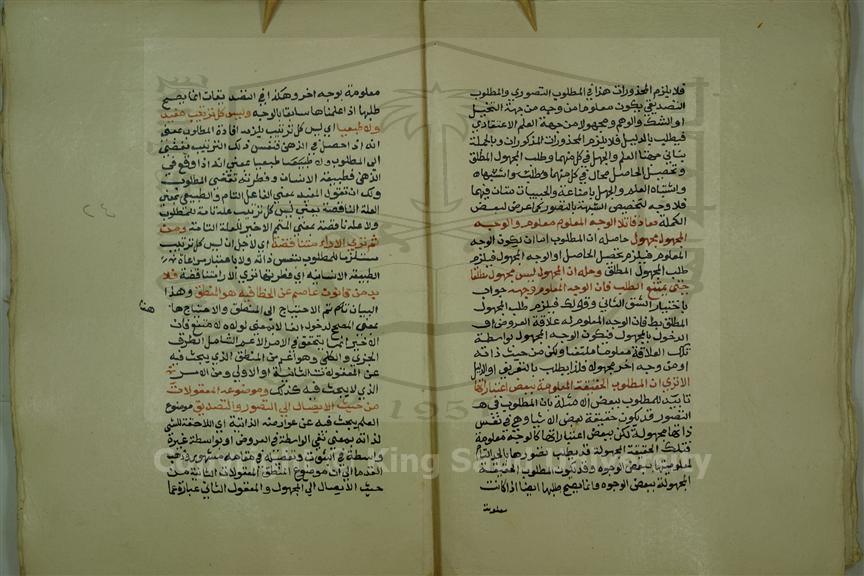 فلا يلزم المحذورات هذا في المطلوب التصوري والمطلوب
التصديقي يكون معلوما من وجه من جهة التخييل
او الشك والوهم ومجهولا من جهة العلم الاعتقادي
فيطلب بالدليل فلا يلزم المحذورات المذكورات وبالجملة
جهتا العلم والجهل في كل منهما وطلب المجهول المطلق
وتحصيل الحاصل محال في كل منهما
واشتباه العلم والجهل
فلا وجه لتخصيص الشبهة بالتصور كما عرض لبعض
الكملة فعاد قائلا الوجه المعلوم معلوم والوجه
المجهول مجهول حاصله ان المطلوب اما ان يكون الوجه
المعلوم فيلزم تحصيل الحاصل او الوجه المجهول فيلزم
طلب المجهول المطلق وحله ان المجهول ليس مجهولا مطلقا
حتى يمتنع الطلب فان الوجه المعلوم وجهه جواب
باختيار الشق الثاني وقولك فيلزم طلب المجهول
المطلق بط فان الوجه المعلوم له علاقة العروض او
الدخول بالمجهول فيكون الوجه المجهول بواسطة
تلك العلاقة معلوما ملتفتا ولكن من حيث ذاته
او من وجه اخر مجهولة فلذا يطلب بالتعريف او الدليل
الا ترى ان المطلوب الحقيقة المعلومة ببعض اعتباراتها
تاييد للمطلوب ببعض الامثلة بان المطلوب في
التصور قد يكون حقيقة بعض الاشيا وهي في نفس
ذاتها مجهولة لكن ببعض اعتباراتها كالوجه معلومة
فتلك الحقيقة المجهولة قد يطلب تصورها بالحد
لمعلوميتها ببعض الوجوه وقد يكون المطلوب الحقيقة
المجهولة ببعض الوجوه وانما يصح طلبها ايضا اذا كانت
معلومة
معلومة بوجه اخر وهكذا في التصديقات انما يصح
طلبها اذا علمناها سابقا بالوجه وليس كل ترتيب مفيد
ولا طبيعيا اي ليس كل ترتيب يلزمه افادة المطلوب بمعنى
انه اذا حصل في الذهن فنفس ذلك الترتيب يفضي
الى المطلوب ولا طبيعيا بمعنى انه اذا وقع في
الذهن فطبيعة الانسان وفطرته تقتضي المطلوب
ولك ان تقول المفيد بمعنى الفاعل التام والطبيعي بمعنى
العلة الناقصة بمعنى ليس كل ترتيب علة تامة للمطلوب
ولا علة ناقصة بمعنى المتمم الاخير للعلة التامة ومن
ثم ترى الاراء متناقضة اي لاجل ان ليس كل ترتيب
مستلزما للمطلوب بنفس ذاته ولا باعتبار مراعاة
الطبيعة الانسانية اي فطرتها ترى الاراء متناقضة فلا
بد من قانون عاصم عن الخطا فيه هو المنطق وهذا
البيان تام الاحتياج الى المنطق والاحتياج ها
هنا
بمعنى المصحح لدخول الفا لا بمعنى لولاه لامتنع فان
الاخير انما يتحقق في الامر الاعم الشامل لطرف
الجزئي والكلي وهو اعم من المنطق الذي يبحث فيه
عن المعقولات الثانية
الذي لا يبحث فيه كذلك وموضوعه المعقولات
من حيث الايصال الى التصور والتصديق موضوع
العلم يبحث فيه عن عوارضه الذاتية اي اللاحقة للشي
لذاته بمعنى نفي الواسطة في العروض او بواسطة غيره
واسطة في الثبوت وتفصيله في مقامه مشهور وذهب
القدما الى ان موضوع المنطق المعقولات الثانية من
حيث الايصال الى المجهول والمعقول الثاني عبارة عما